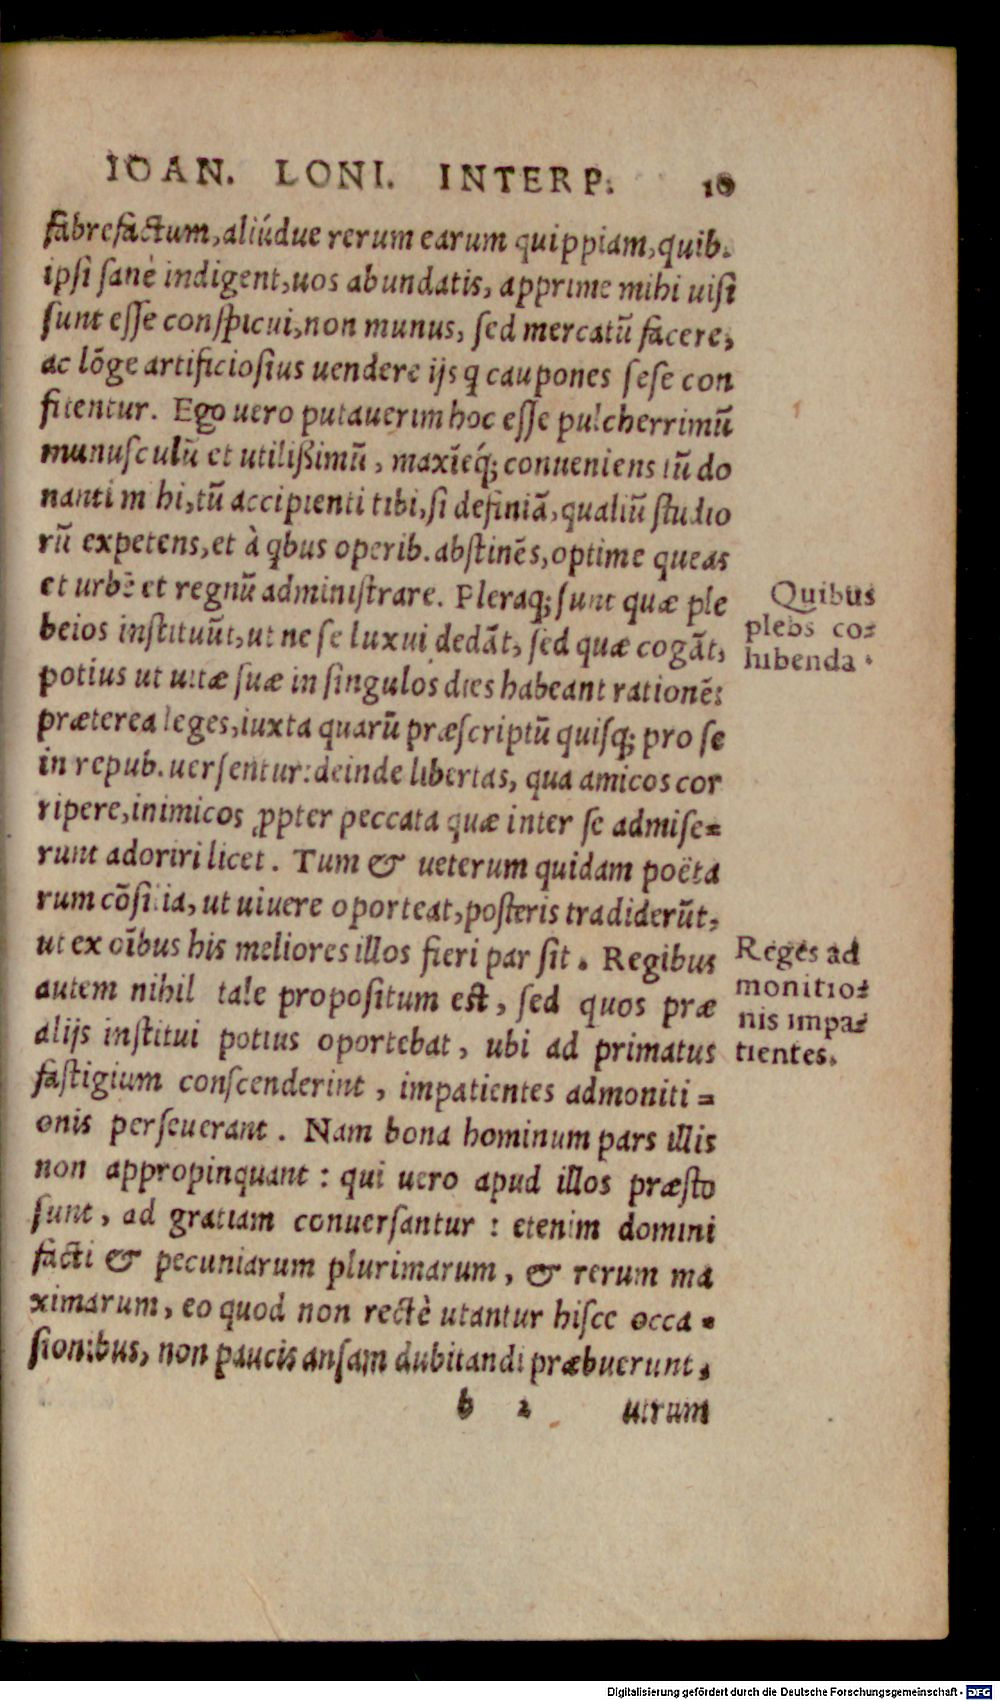 IOAN. LONI. INTERP. 10
fabrefactum, aliúdue rerum earum quippiam, quib.
ipsi sanè indigent, uos abundatis, apprime mihi uisi
sunt esse conspicui, non munus, sed mercatū facere,
ac lōge artificiosius uendere ijs q caupones sese con
fitentur. Ego uero putauerim hoc esse pulcherrimū
munusculū et utilißimū, maxīeq́; conueniens tū do
nanti mihi, tū accipienti tibi, si definiā, qualiū studio
rū expetens, et à qbus operib. abstinēs, optime queas
et urbē et regnū administrare. Pleraq; sunt quæ ple
beios instituūt, ut ne se luxui dedāt, sed quæ cogāt,
potius ut uitæ suæ in singulos dies habeant rationē:
præterea leges, iuxta quarū præscriptū quisq; pro se
in repub. uersentur: deinde libertas, qua amicos cor
ripere, inimicos ꝓpter peccata quæ inter se admise=
runt adoriri licet. Tum & ueterum quidam poëta
rum cōsilia, ut uiuere oporteat, posteris tradiderūt,
ut ex oībus his meliores illos fieri par sit. Regibus
autem nihil tale propositum est, sed quos præ
alijs institui potius oportebat, ubi ad primatus
fastigium conscenderint, impatientes admoniti=
onis perseuerant. Nam bona hominum pars illis
non appropinquant: qui uero apud illos præsto
sunt, ad gratiam conuersantur: etenim domini
facti & pecuniarum plurimarum, & rerum ma
ximarum, eo quod non rectè utantur hisce occa=
sionibus, non paucis ansam dubitandi præbuerunt,
b 2 utrum
Quibus
plebs co=
hibenda.
Reges ad
monitio=
nis impa=
tientes.
Digitalisierung gefördert durch die Deutsche Forschungsgemeinschaft - DFG